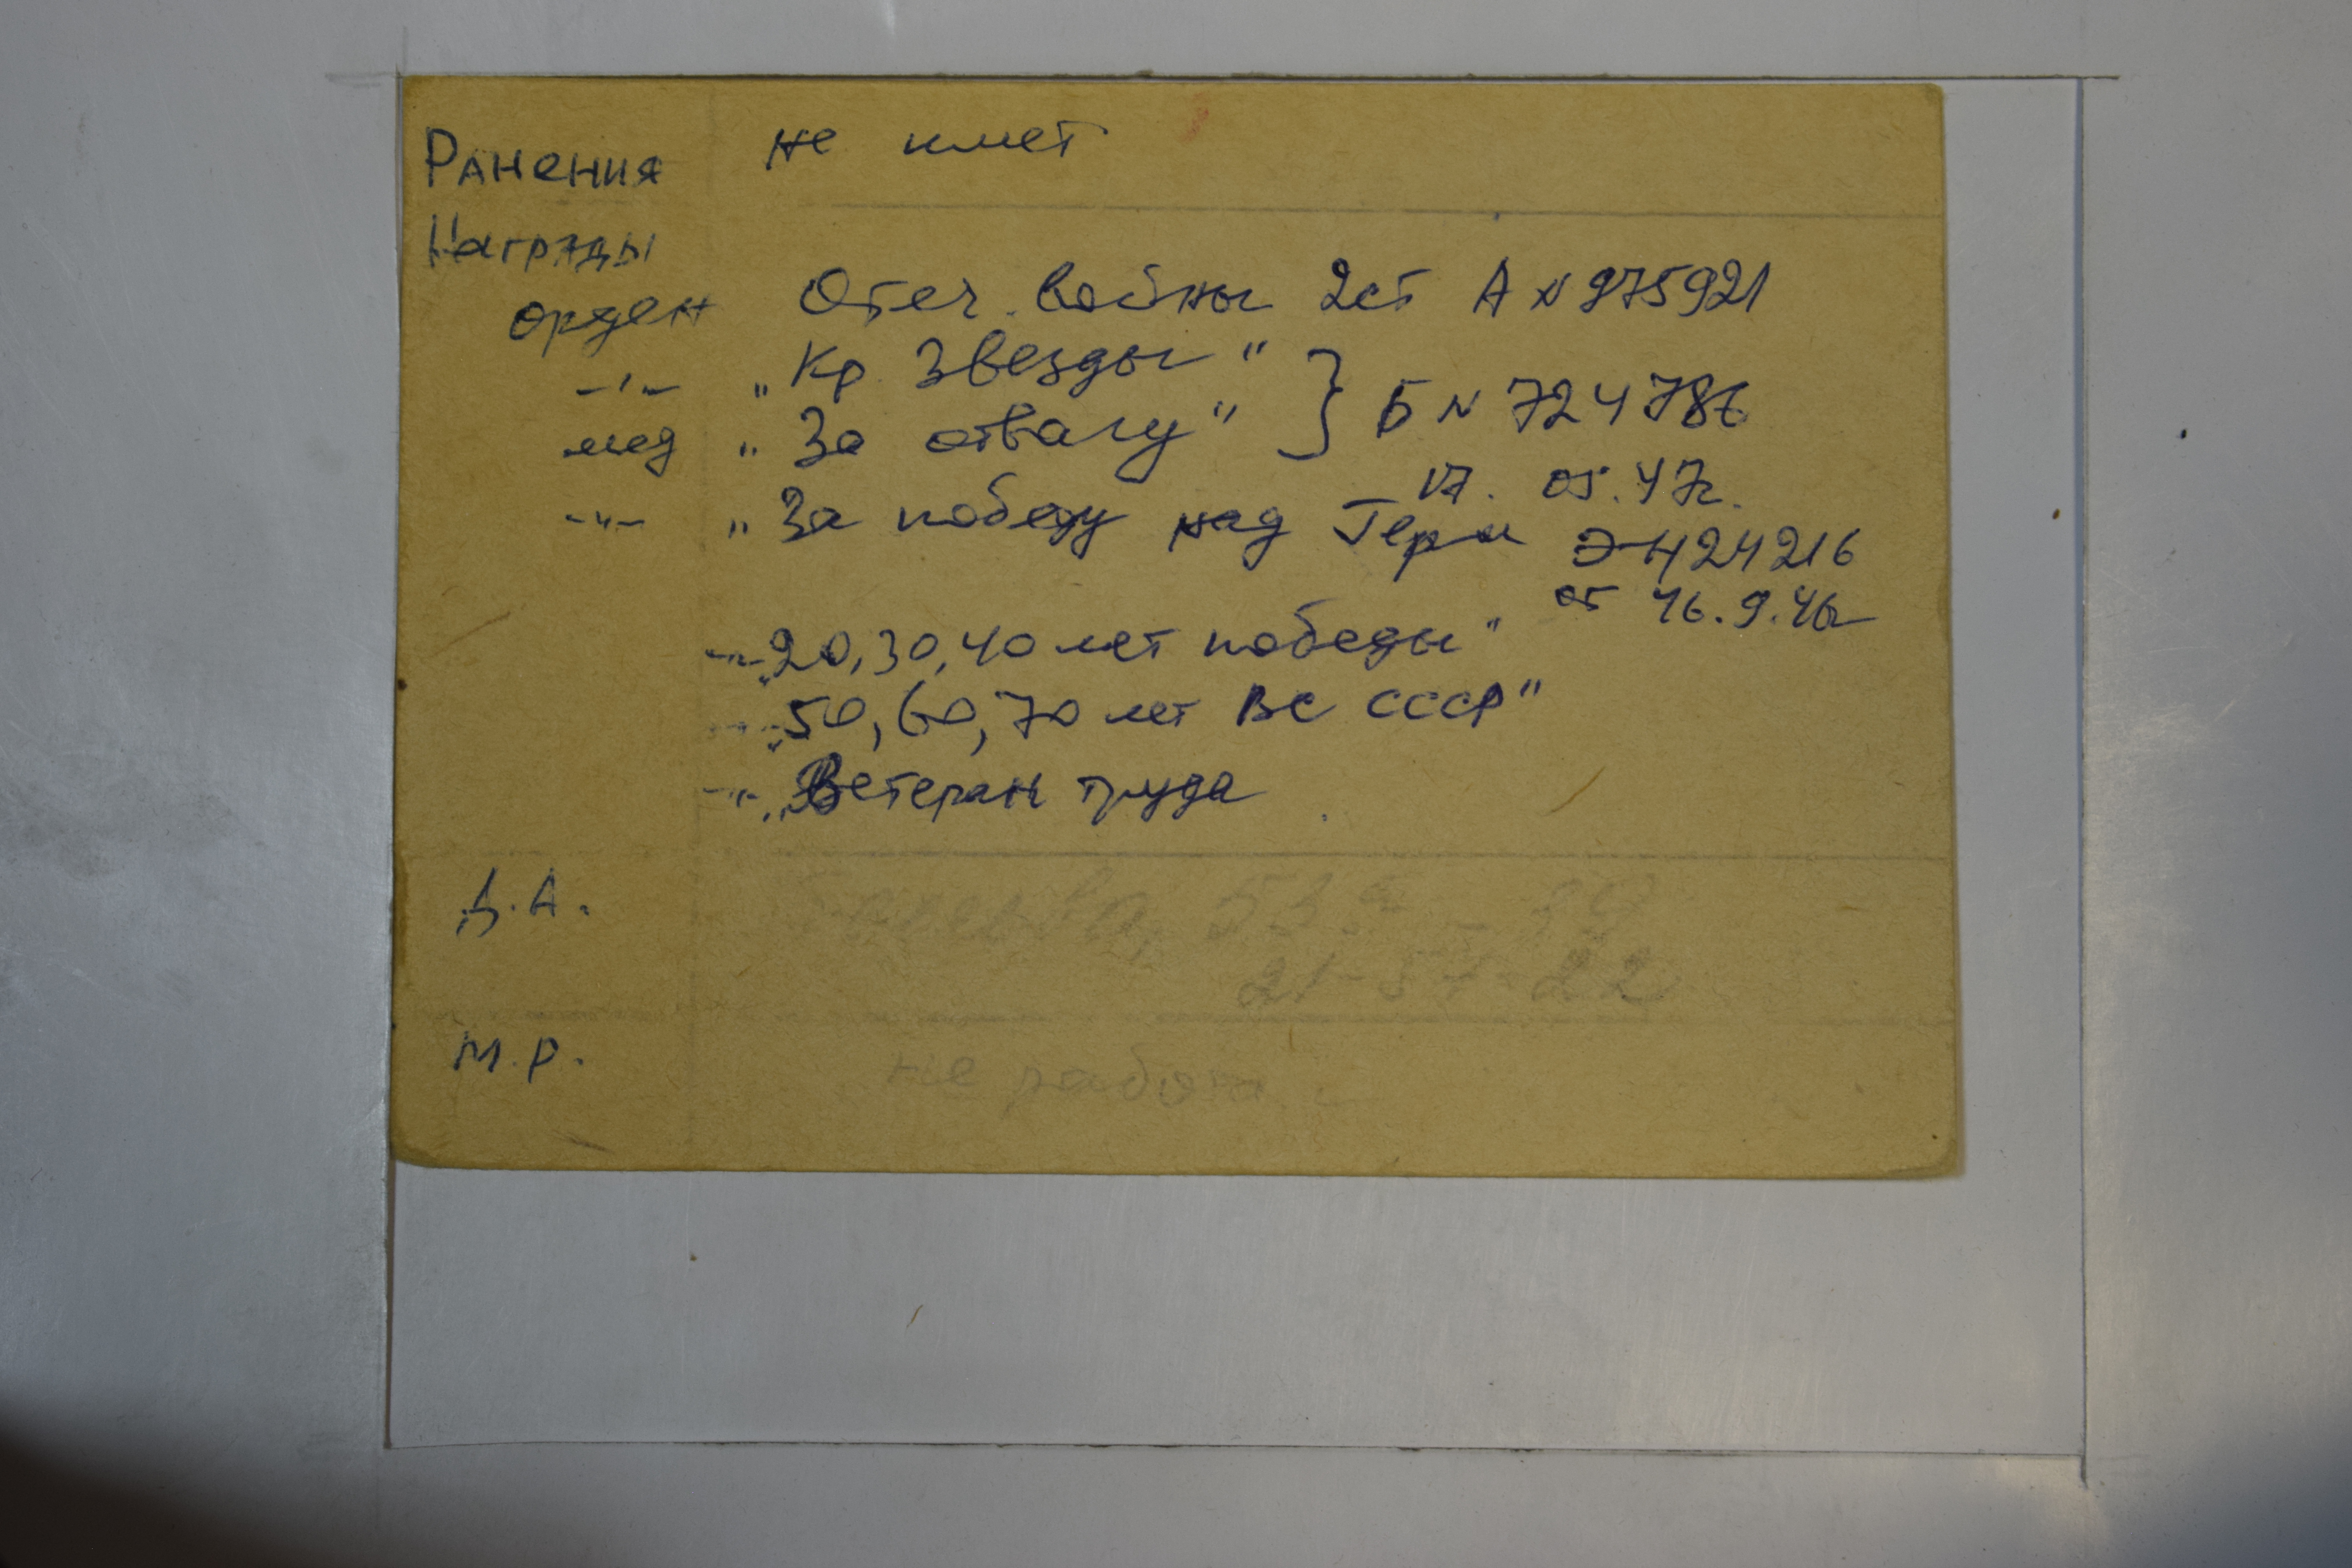 Ранения не имет
Награды
орден Отеч. войны 2ст А № 975921
-"- „Кр. Звезды" } Б № 724786
мед „За отвагу"
17. 05. 47г.
-"- „За победу над Герм Э-Н24216
от 16.9.46г
-"- „20,30,40 лет победы"
-"- „50,60,70 лет ВС СССР"
-"- „Ветеран труда
Д.А. 53
21-57-22
М.Р. не работа